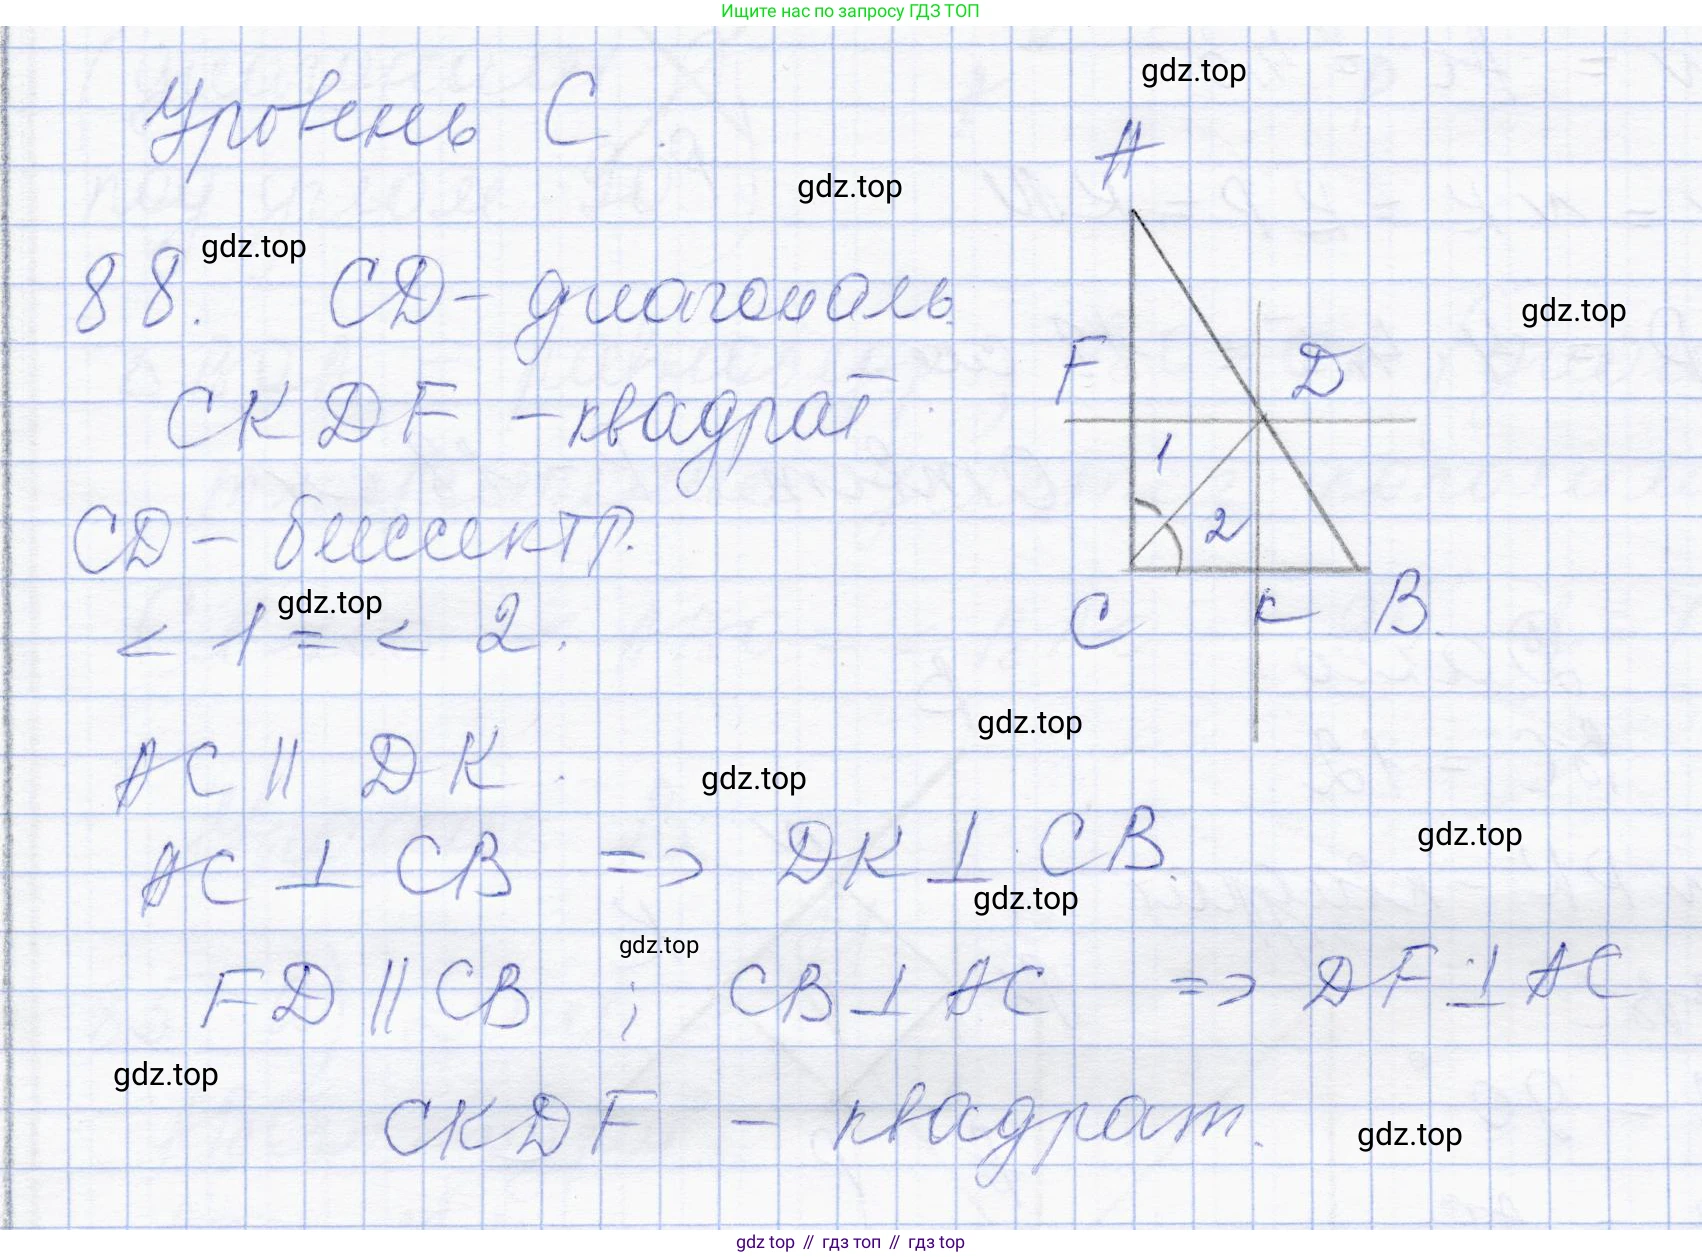 Ищите нас по запросу ГДЗ ТОП
Уровень С.
gdz.top
gdz.top
gdz.top
88. CD - диагональ
CKDF - квадрат.
CD - биссектр.
< 1 = < 2.
gdz.top
AC || DK.
AC ⊥ CB => DK ⊥ CB.
FD || CB ; CB ⊥ AC => DF ⊥ AC
CKDF - квадрат.
A
gdz.top
F
D
1
2
C
K
B.
gdz.top
gdz.top
gdz.top
gdz.top
gdz.top
gdz.top
gdz.top
gdz top // гдз топ // гдз top